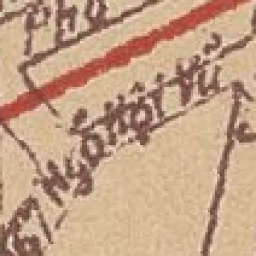 Phố
Ngõ Hội Vũ